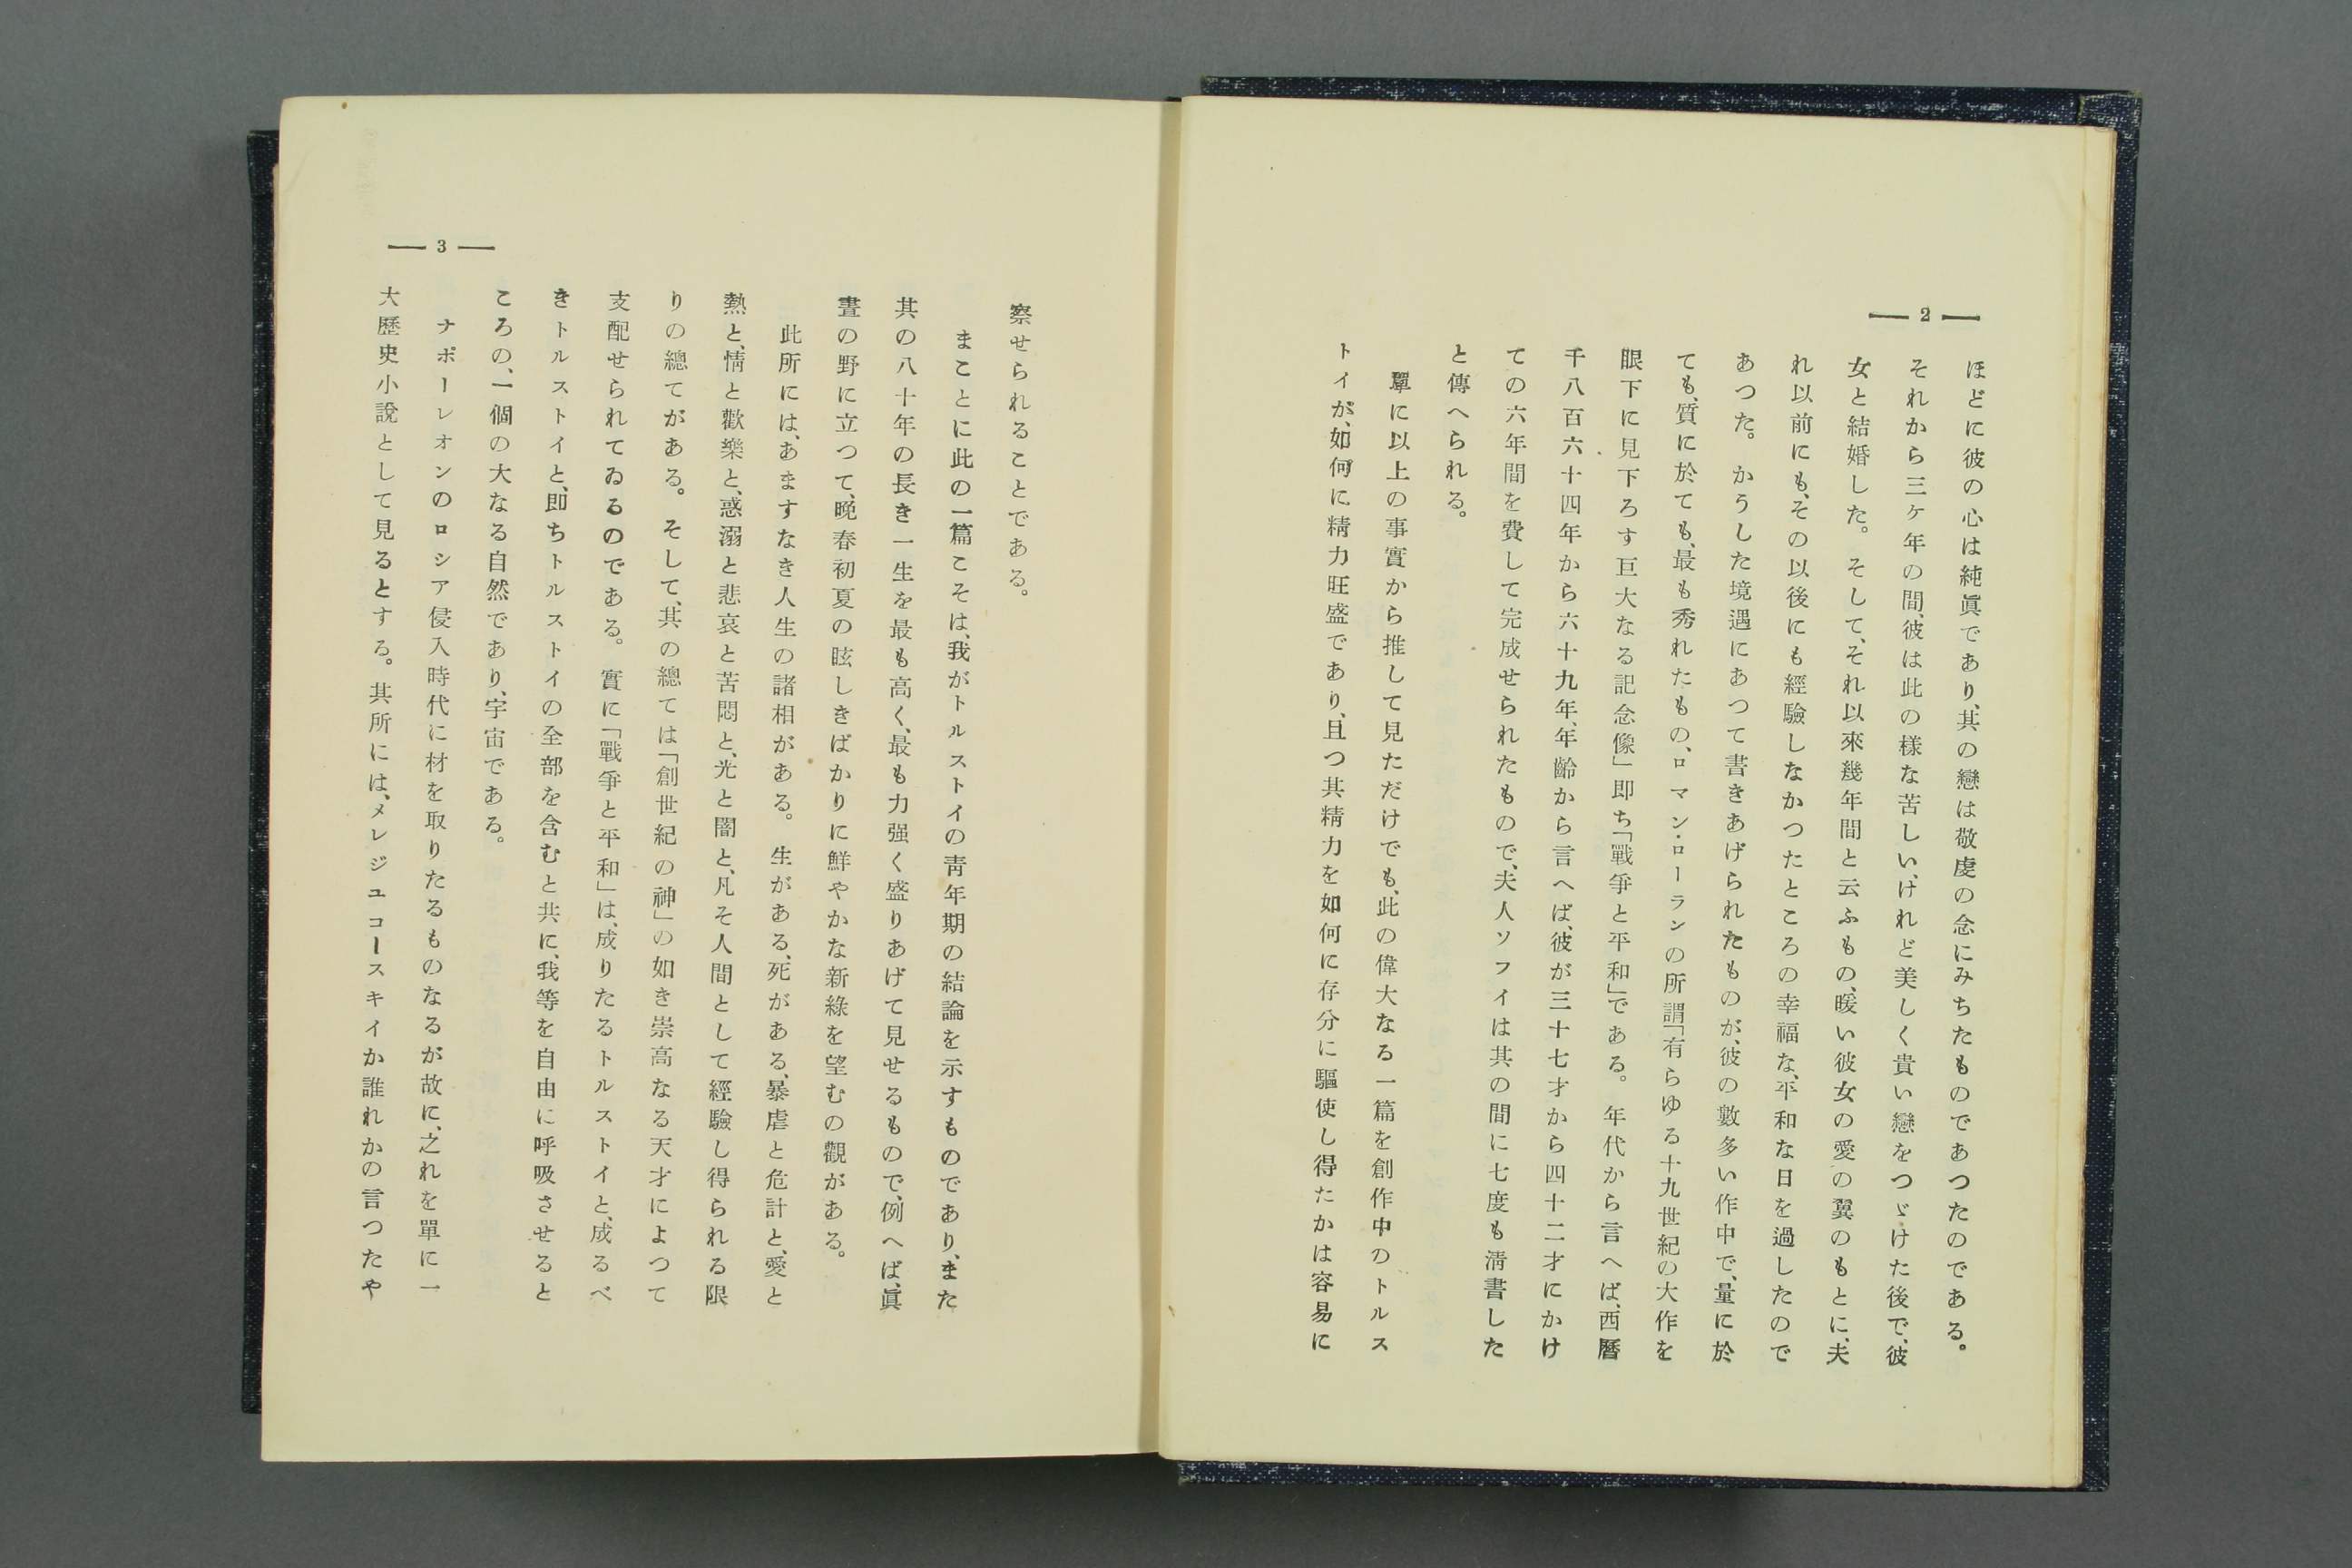 2
ほどに彼の心は純眞であり、其の戀は敬虔の念にみちたものであつたのである。
それから三ケ年の間、彼は此の様な苦しい、けれど美しく貴い戀をつゞけた後で、彼
女と結婚した。そして、それ以來幾年間と云ふもの、暖い彼女の愛の翼のもとに、夫
れ以前にも、その以後にも經驗しなかつたところの幸福な、平和な日を過したので
あつた。かうした境遇にあつて書きあげられたものが、彼の數多い作中で、量に於
ても、質に於ても、最も秀れたもの、ロマン・ローランの所謂「有らゆる十九世紀の大作を
眼下に見下ろす巨大なる記念像」即ち「戰爭と平和」である。年代から言へば、西曆
千八百六十四年から六十九年、年齡から言へば、彼が三十七才から四十二才にかけ
ての六年間を費して完成せられたもので、夫人ソフイは其の間に七度も淸書した
と傳へられる。
單に以上の事實から推して見ただけでも、此の偉大なる一篇を創作中のトルス
トイが、如何に精力旺盛であり、且つ其精力を如何に存分に驅使し得たかは容易に
3
察せられることである。
まことに此の一篇こそは、我がトルストイの靑年期の結論を示すものであり、また
其の八十年の長き一生を最も高く、最も力强く盛りあげて見せるもので、例へば、眞
晝の野に立つて、晩春初夏の眩しきばかりに鮮やかな新綠を望むの觀がある。
此所には、あますなき人生の諸相がある。生がある、死がある、暴虐と危計と、愛と
熱と、情と歡樂と、惑溺と悲哀と苦悶と、光と闇と、凡そ人間として經驗し得られる限
りの總てがある。そして、其の總ては「創世紀の神」の如き崇高なる天才によつて
支配せられてゐるのである。實に「戰爭と平和」は、成りたるトルストイと、成るべ
きトルストイと、即ちトルストイの全部を含むと共に、我等を自由に呼吸させると
ころの、一個の大なる自然であり、宇宙である。
ナポーレオンのロシア侵入時代に材を取りたるものなるが故に、之れを單に一
大歷史小說として見るとする。其所には、メレジユコースキイか誰れかの言つたや